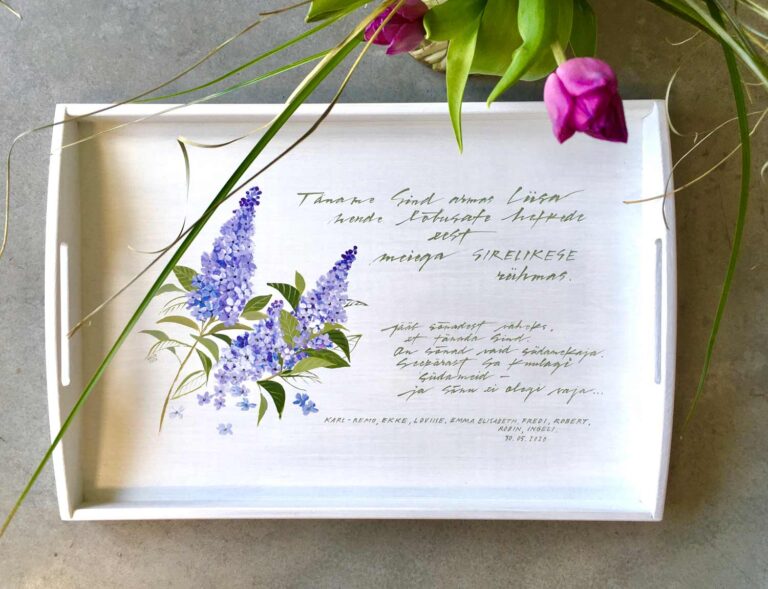 Täname Sind armas Liisa
nende lõbusate hetkede
eest
meiega SIRELIKESE
rühmas.
Jääb sõnadest väheks,
et tänada Sind.
On sõnad vaid südamekaja.
Seepärast Sa kuulagi
südameid –
ja sõnu ei olegi vaja...
KARL-REMO, EKKE, LOVIISE, EMMA ELISABETH, FREDI, ROBERT,
ROBIN, INGELI.
30.05.2020